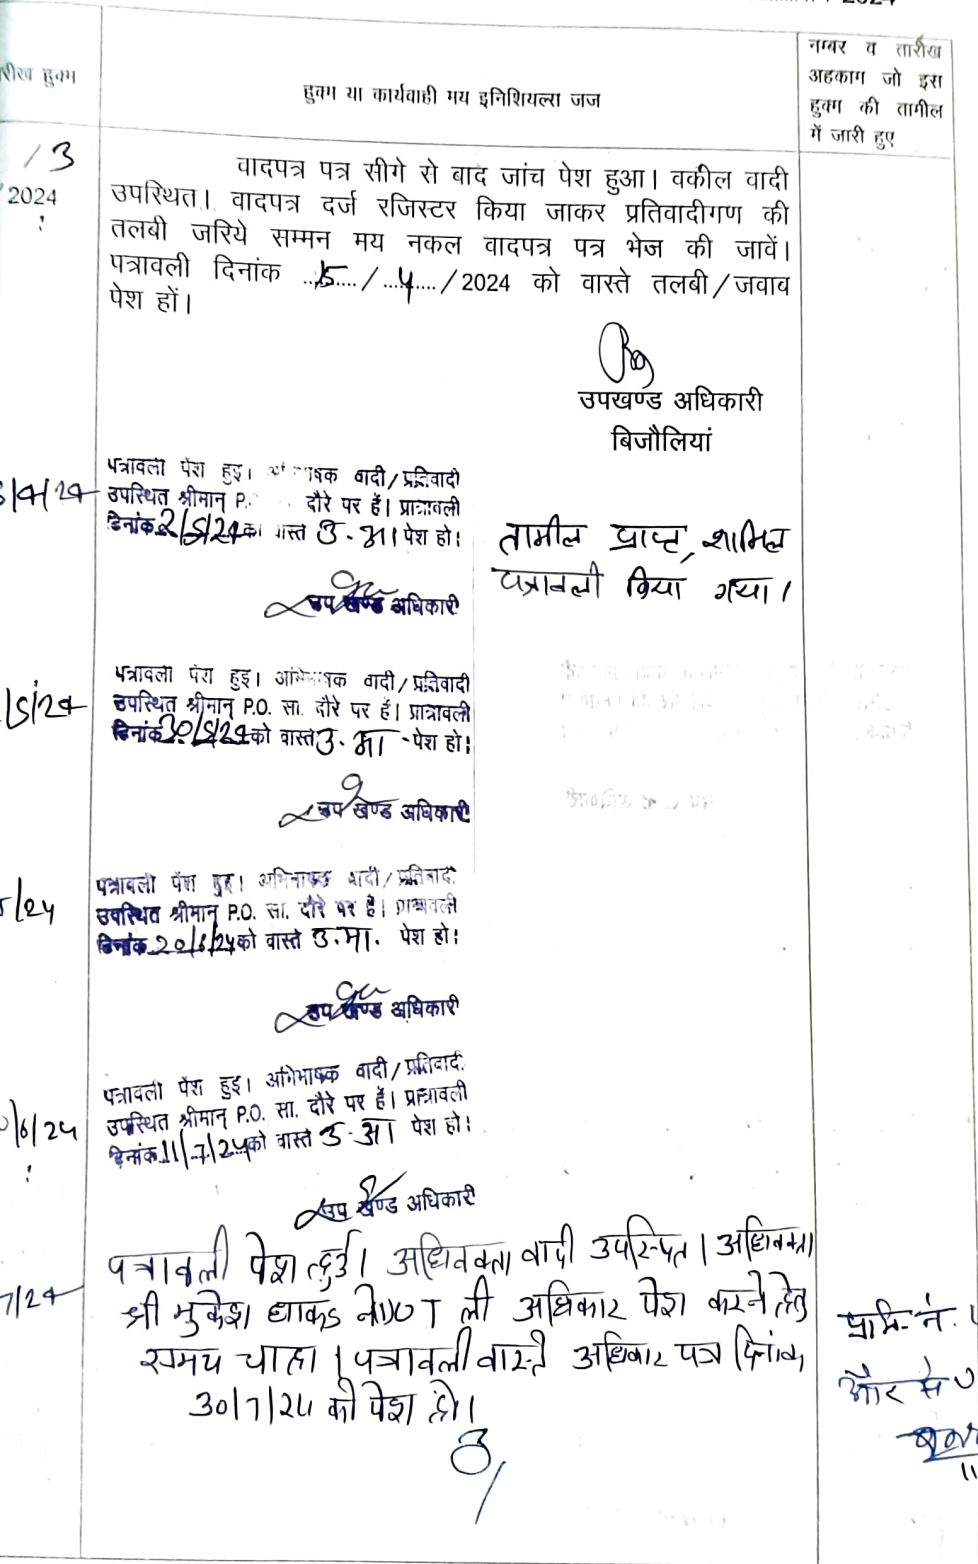 2024
रीख हुक्म
हुक्म या कार्यवाही मय इनिशियल्स जज
नम्बर व तारीख
अहकाम जो इस
हुक्म की तामील
में जारी हुए
/3
2024
वादपत्र पत्र सीगे से बाद जांच पेश हुआ। वकील वादी
उपस्थित। वादपत्र दर्ज रजिस्टर किया जाकर प्रतिवादीगण की
तलबी जरिये सम्मन मय नकल वादपत्र पत्र भेज की जावें।
पत्रावली दिनांक ..15..../...4..../2024 को वास्ते तलबी/जवाब
पेश हों।
उपखण्ड अधिकारी
बिजौलियां
पत्रावली पेश हुइ। षक वादी/प्रतिवादी
/4/24
उपस्थित श्रीमान् P. दौरे पर हैं। प्रात्रावली
दिनांक 2/5/24 का वास्ते उ. आ। पेश हो।
उप खण्ड अधिकारी
तामील प्राप्त, शामिल
पत्रावली किया गया।
पत्रावली पेश हुइ। अभिभाषक वादी/प्रतिवादी
/5/24
उपस्थित श्रीमान् P.O. सा. दौरे पर हैं। प्रात्रावली
दिनांक 30/5/24 को वास्ते उ. आ - पेश हो।
उप खण्ड अधिकारी
पत्रावली पेश हुइ। अभिभाषक वादी/प्रतिवादी
/24
उपस्थित श्रीमान् P.O. सा. दौरे पर हैं। प्रात्रावली
दिनांक 20/6/24 को वास्ते उ.आ. पेश हो।
उप खण्ड अधिकारी
पत्रावली पेश हुइ। अभिभाषक वादी/प्रतिवादी
/6/24
उपस्थित श्रीमान् P.O. सा. दौरे पर हैं। प्रात्रावली
दिनांक 11/7/24 को वास्ते उ. आ पेश हो।
उप खण्ड अधिकारी
पत्रावली पेश हुई। अधिवक्ता वादी उपस्थित। अधिवक्ता
7/24
श्री मुकेश धाकड ने ली अधिकार पेश करने हेतु
समय चाहा। पत्रावली वास्ते अधिकार पत्र दिनांक
30/7/24 को पेश हो।
और से